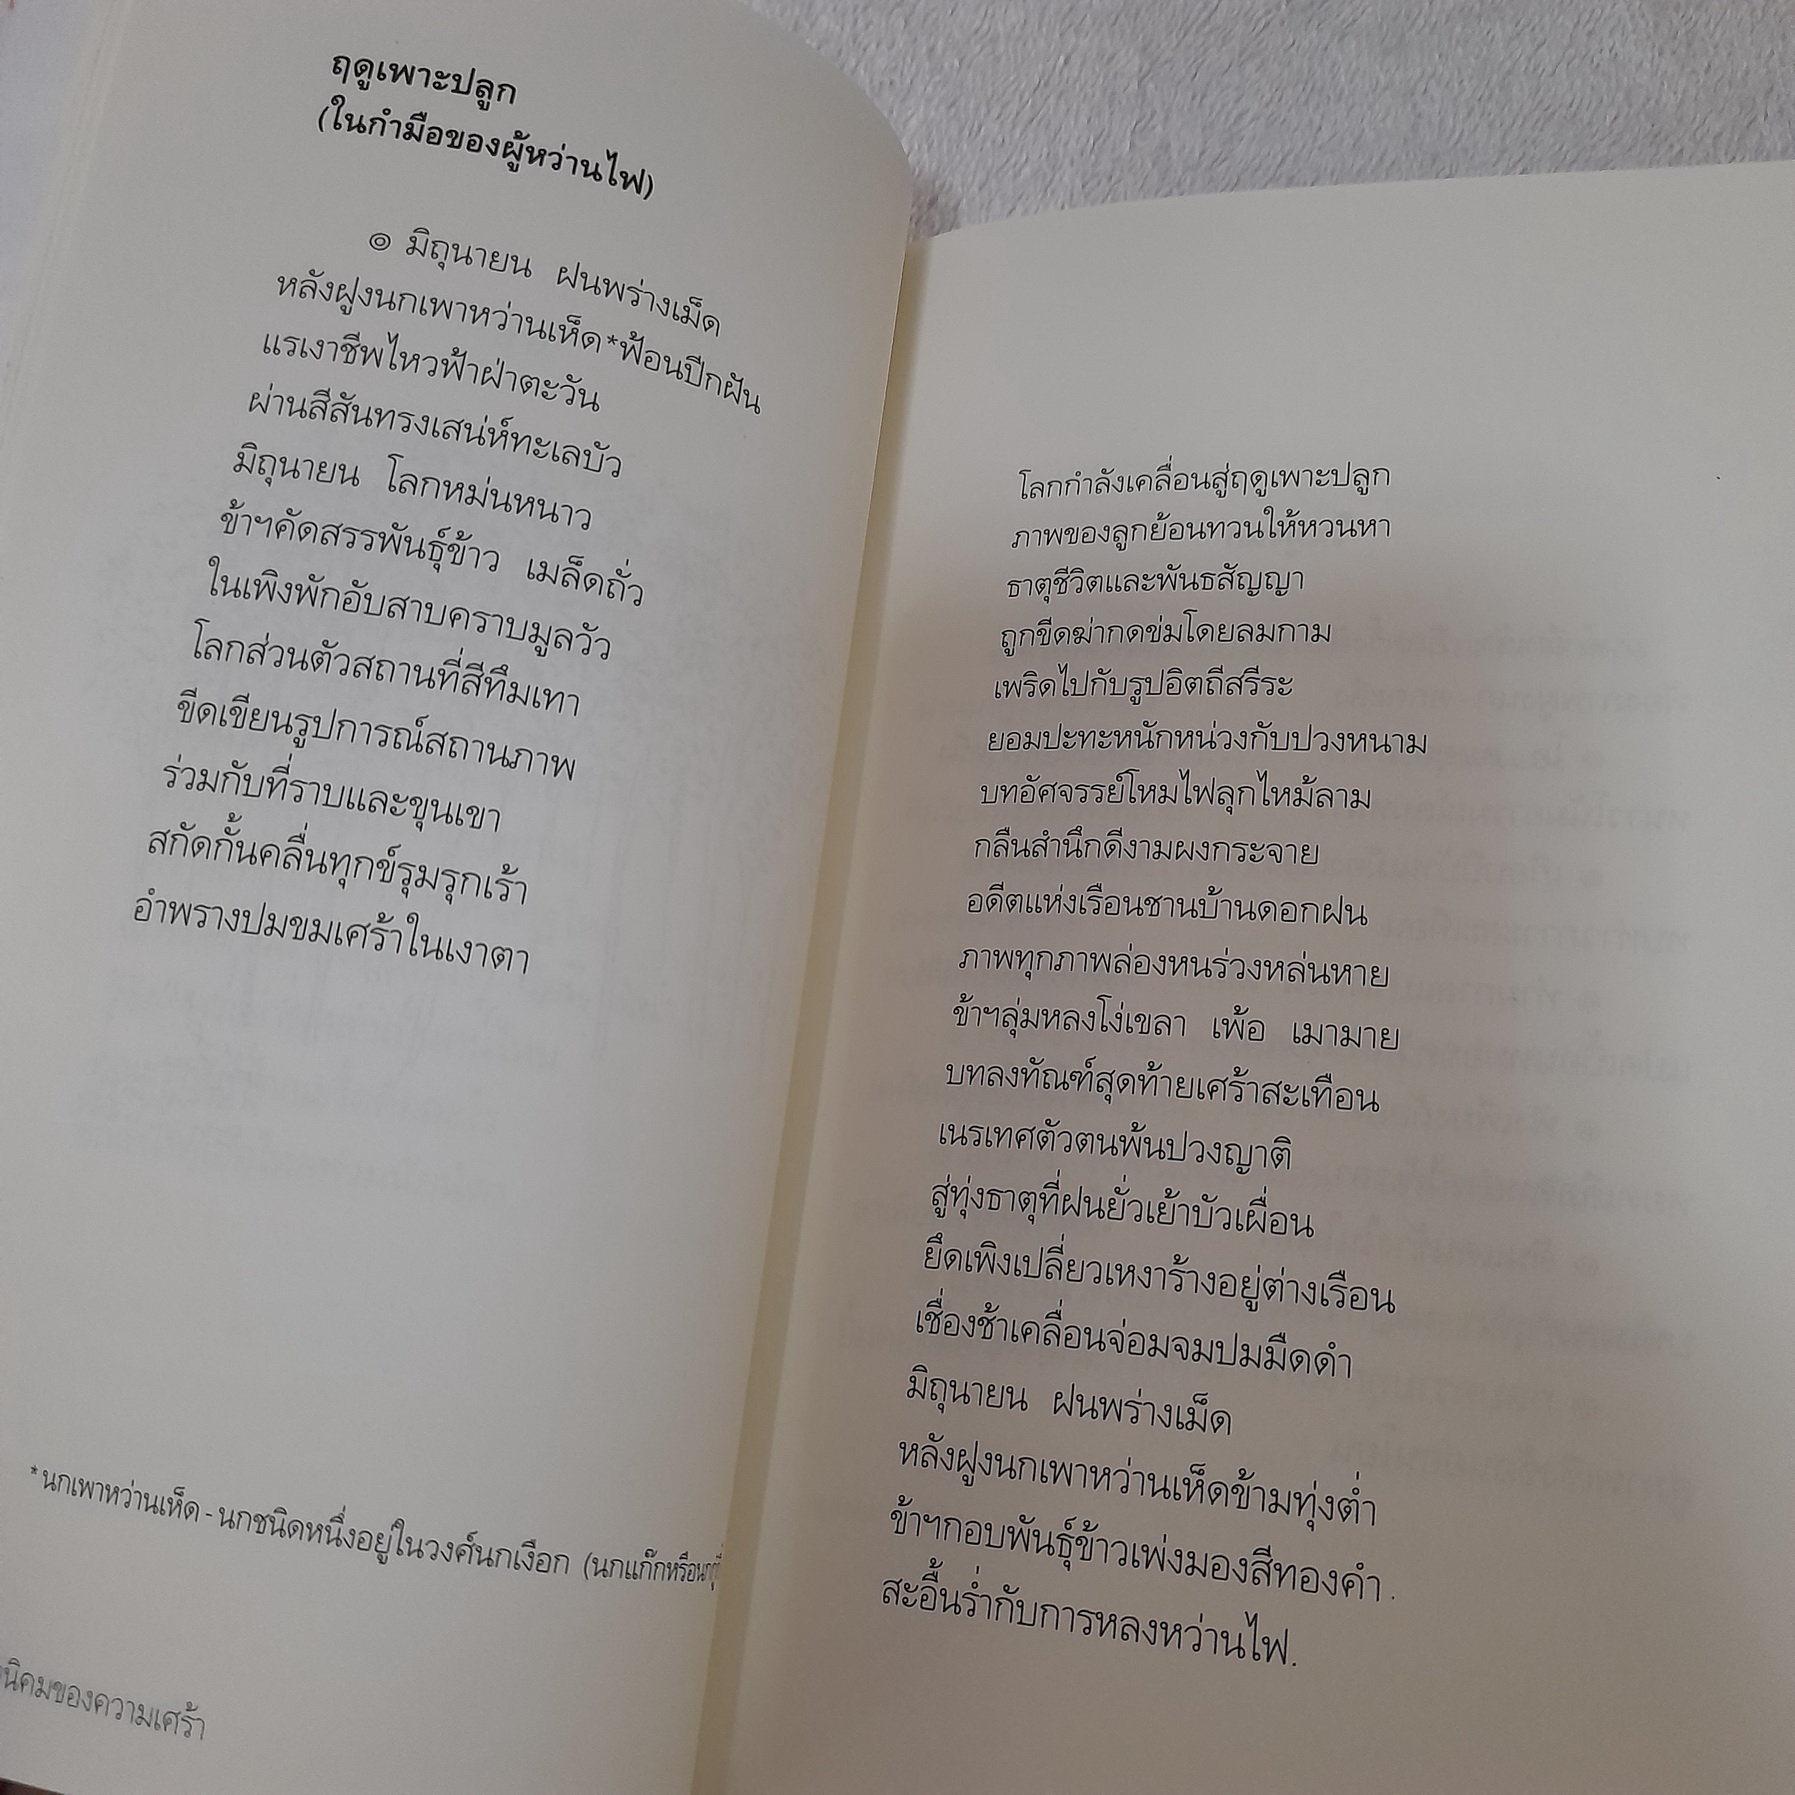 ฤดูเพาะปลูก
(ในกำมือของผู้หว่านไฟ)
๏ มิถุนายน ฝนพร่างเม็ด
หลังฝูงนกเพาหว่านเห็ด*ฟ้อนปีกฝัน
แรเงาชีพไหวฟ้าฝ่าตะวัน
ผ่านสีสันทรงเสน่ห์ทะเลบัว
มิถุนายน โลกหม่นหนาว
ข้าฯคัดสรรพันธุ์ข้าว เมล็ดถั่ว
ในเพิงพักอับสาบคราบมูลวัว
โลกส่วนตัวสถานที่สีทึมเทา
ขีดเขียนรูปการณ์สถานภาพ
ร่วมกับที่ราบและขุนเขา
สกัดกั้นคลื่นทุกข์รุมรุกเร้า
อำพรางปมขมเศร้าในเงาตา
*นกเพาหว่านเห็ด - นกชนิดหนึ่งอยู่ในวงศ์นกเงือก (นกแก๊กหรือ
นิคมของความเศร้า
โลกกำลังเคลื่อนสู่ฤดูเพาะปลูก
ภาพของลูกย้อนทวนให้หวนหา
ธาตุชีวิตและพันธสัญญา
ถูกขีดฆ่ากดข่มโดยลมกาม
เพริดไปกับรูปอิตถีสรีระ
ยอมปะทะหนักหน่วงกับปวงหนาม
บทอัศจรรย์โหมไฟลุกไหม้ลาม
กลืนสำนึกดีงามผงกระจาย
อดีตแห่งเรือนชานบ้านดอกฝน
ภาพทุกภาพล่องหนร่วงหล่นหาย
ข้าฯลุ่มหลงโง่เขลา เพ้อ เมามาย
บทลงทัณฑ์สุดท้ายเศร้าสะเทือน
เนรเทศตัวตนพ้นปวงญาติ
สู่ทุ่งธาตุที่ฝนยั่วเย้าบัวเผื่อน
ยึดเพิงเปลี่ยวเหงาร้างอยู่ต่างเรือน
เชื่องช้าเคลื่อนจ่อมจมปมมืดดำ
มิถุนายน ฝนพร่างเม็ด
หลังฝูงนกเพาหว่านเห็ดข้ามทุ่งต่ำ
ข้าฯกอบพันธุ์ข้าวเพ่งมองสีทองคำ
สะอื้นร่ำกับการหลงหว่านไฟ.